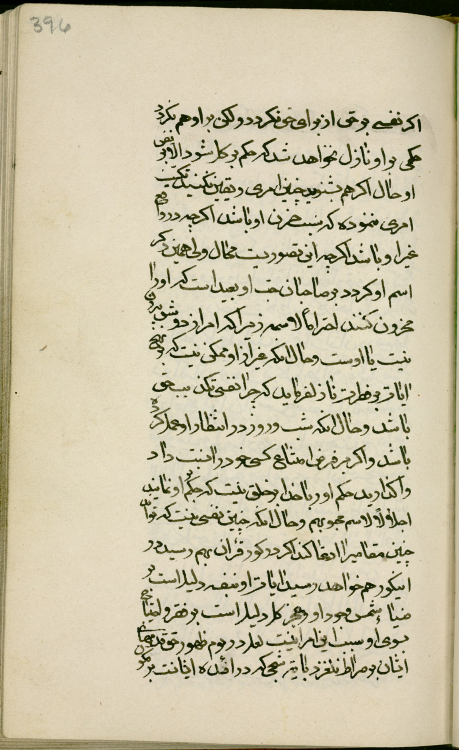 اکر نفسی بر حق از برای حق نکردد ولکن بر او هم نکردد
حکمی بر او نازل نخواهد شد که حکم بر کل شود الا بر نفس
او و حال اکر هم بشنوید چنین امری و یقین نکنید تکسب
امری ننموده که سبب حزن او باشد اکرچه در واقع
غیر او باشد اکرچه این تصوریست محال ولی همین که ذکر
اسم او کردد بر صاحبان حب او بعید است که او را
محزون کنند احتراما لاسمه زیرا که امر از دو شق بیرون
نیست یا اوست و حال آنکه غیر از او ممکن نیست که بر نهج
آیات بر فطرت نازل فرماید که چرا نفسی تکذیب حق
باشد و حال آنکه شب و روز در انتظار او عمل کرده
باشد و اکر بر فرض امتناع کسی خود را نسبت داد
واکذارید حکم او را با خدا بر خلق نیست که حکم بر او نمایند
اجلالا لاسم محبوبهم و حال آنکه چنین نفسی نیست که تواند
چنین مقامی را ادعا کند اکر در کور قرآن بهم رسید در
اینکور هم خواهد رسید آیات او بنفسه دلیل است بر
ضیاء شمس وجود او و عجز کل دلیل است بر فقر و احتیاج
بسوی او سبب این امر اینست لعل در یوم ظهور حق قدمهای
ایشان بر صراط نلغزد بآیه شبحی که در افئده ایشانست بر مکون